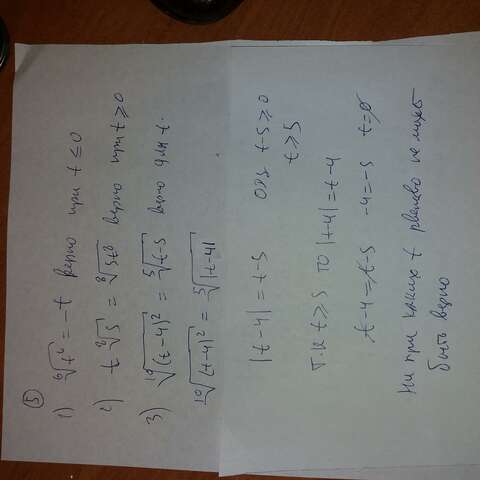 ⑤
1) ⁶√t⁶ = -t верно при t ≤ 0
2) t ⁸√5 = ⁸√5t⁸ верно при t ≥ 0
3) ¹⁰√(t-4)² = ⁵√t-5 верно для t.
¹⁰√(t-4)² = ⁵√|t-4|
|t-4| = t-5 ОДЗ. t-5 ≥ 0
t ≥ 5
Т.к t ≥ 5 то |t-4| = t-4
t-4 = t-5 -4 = -5 t = ∅
Ни при каких t равенство не может
быть верно